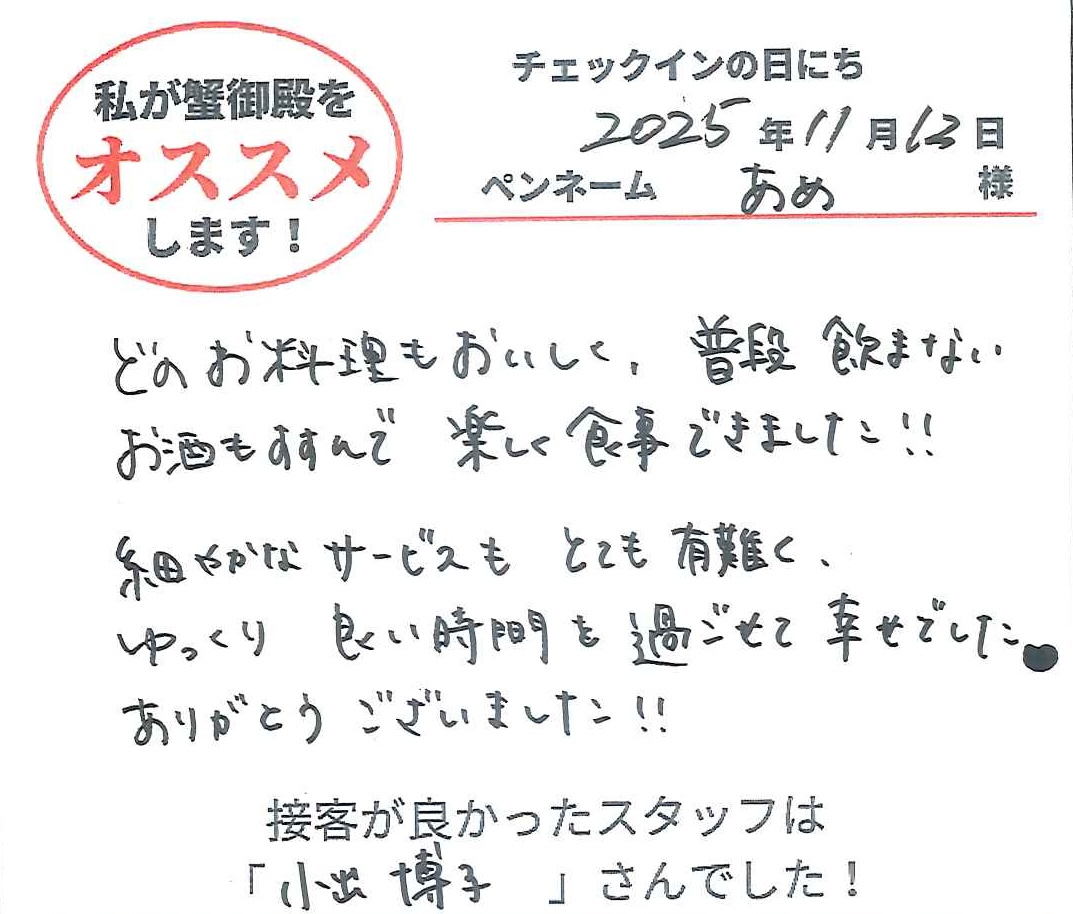 私が蟹御殿を
オススメ
します！
チェックインの日にち
2025年11月12日
ペンネーム あめ 様
どのお料理もおいしく、普段飲まない
お酒もすすんで 楽しく食事できました!!
細やかなサービスも とても有難く、
ゆっくり 良い時間を過ごせて幸せでした
ありがとうございました!!
接客が良かったスタッフは
「小出 博子 」さんでした！